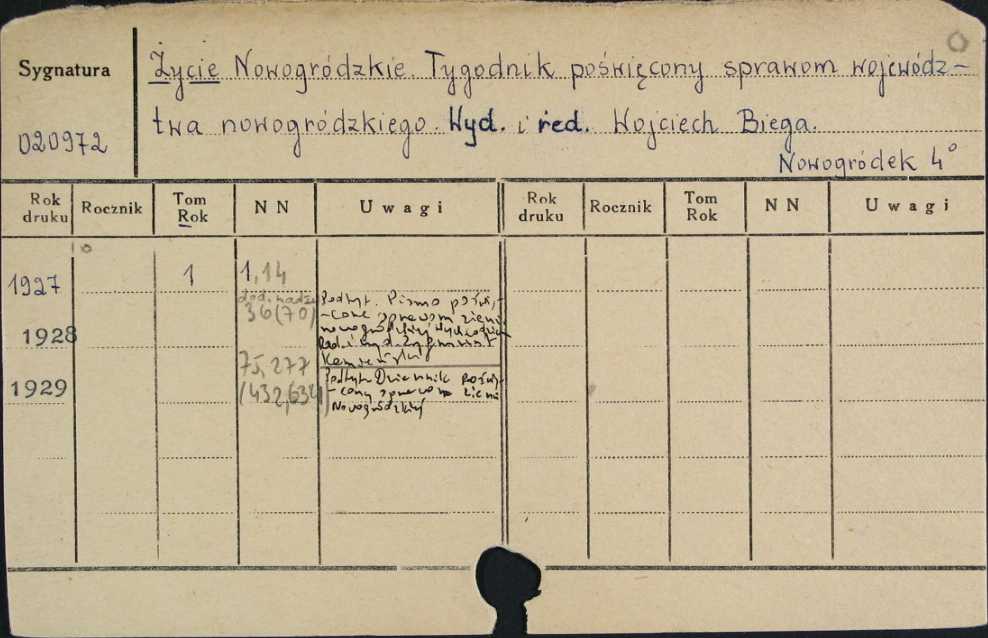 Sygnatura
020972
Życie Nowogródzkie. Tygodnik poświęcony sprawom wojewódz-
twa nowogródzkiego. Wyd. i red. Wojciech Biega.
Nowogródek 4°
Rok druku Rocznik Tom Rok NN Uwagi Rok druku Rocznik Tom Rok NN Uwagi
1927 1 1,14
dod. nadzw.
36(70)
Podtyt. Pismo poświę-
-cone sprawom ziemi
nowogródzkiej
1928
Red. i wyd. Zygmunt
75, 277
1929
(432,634)
Podtyt. Dziennik poświę-
-cony sprawom ziemi
Nowogródzkiej